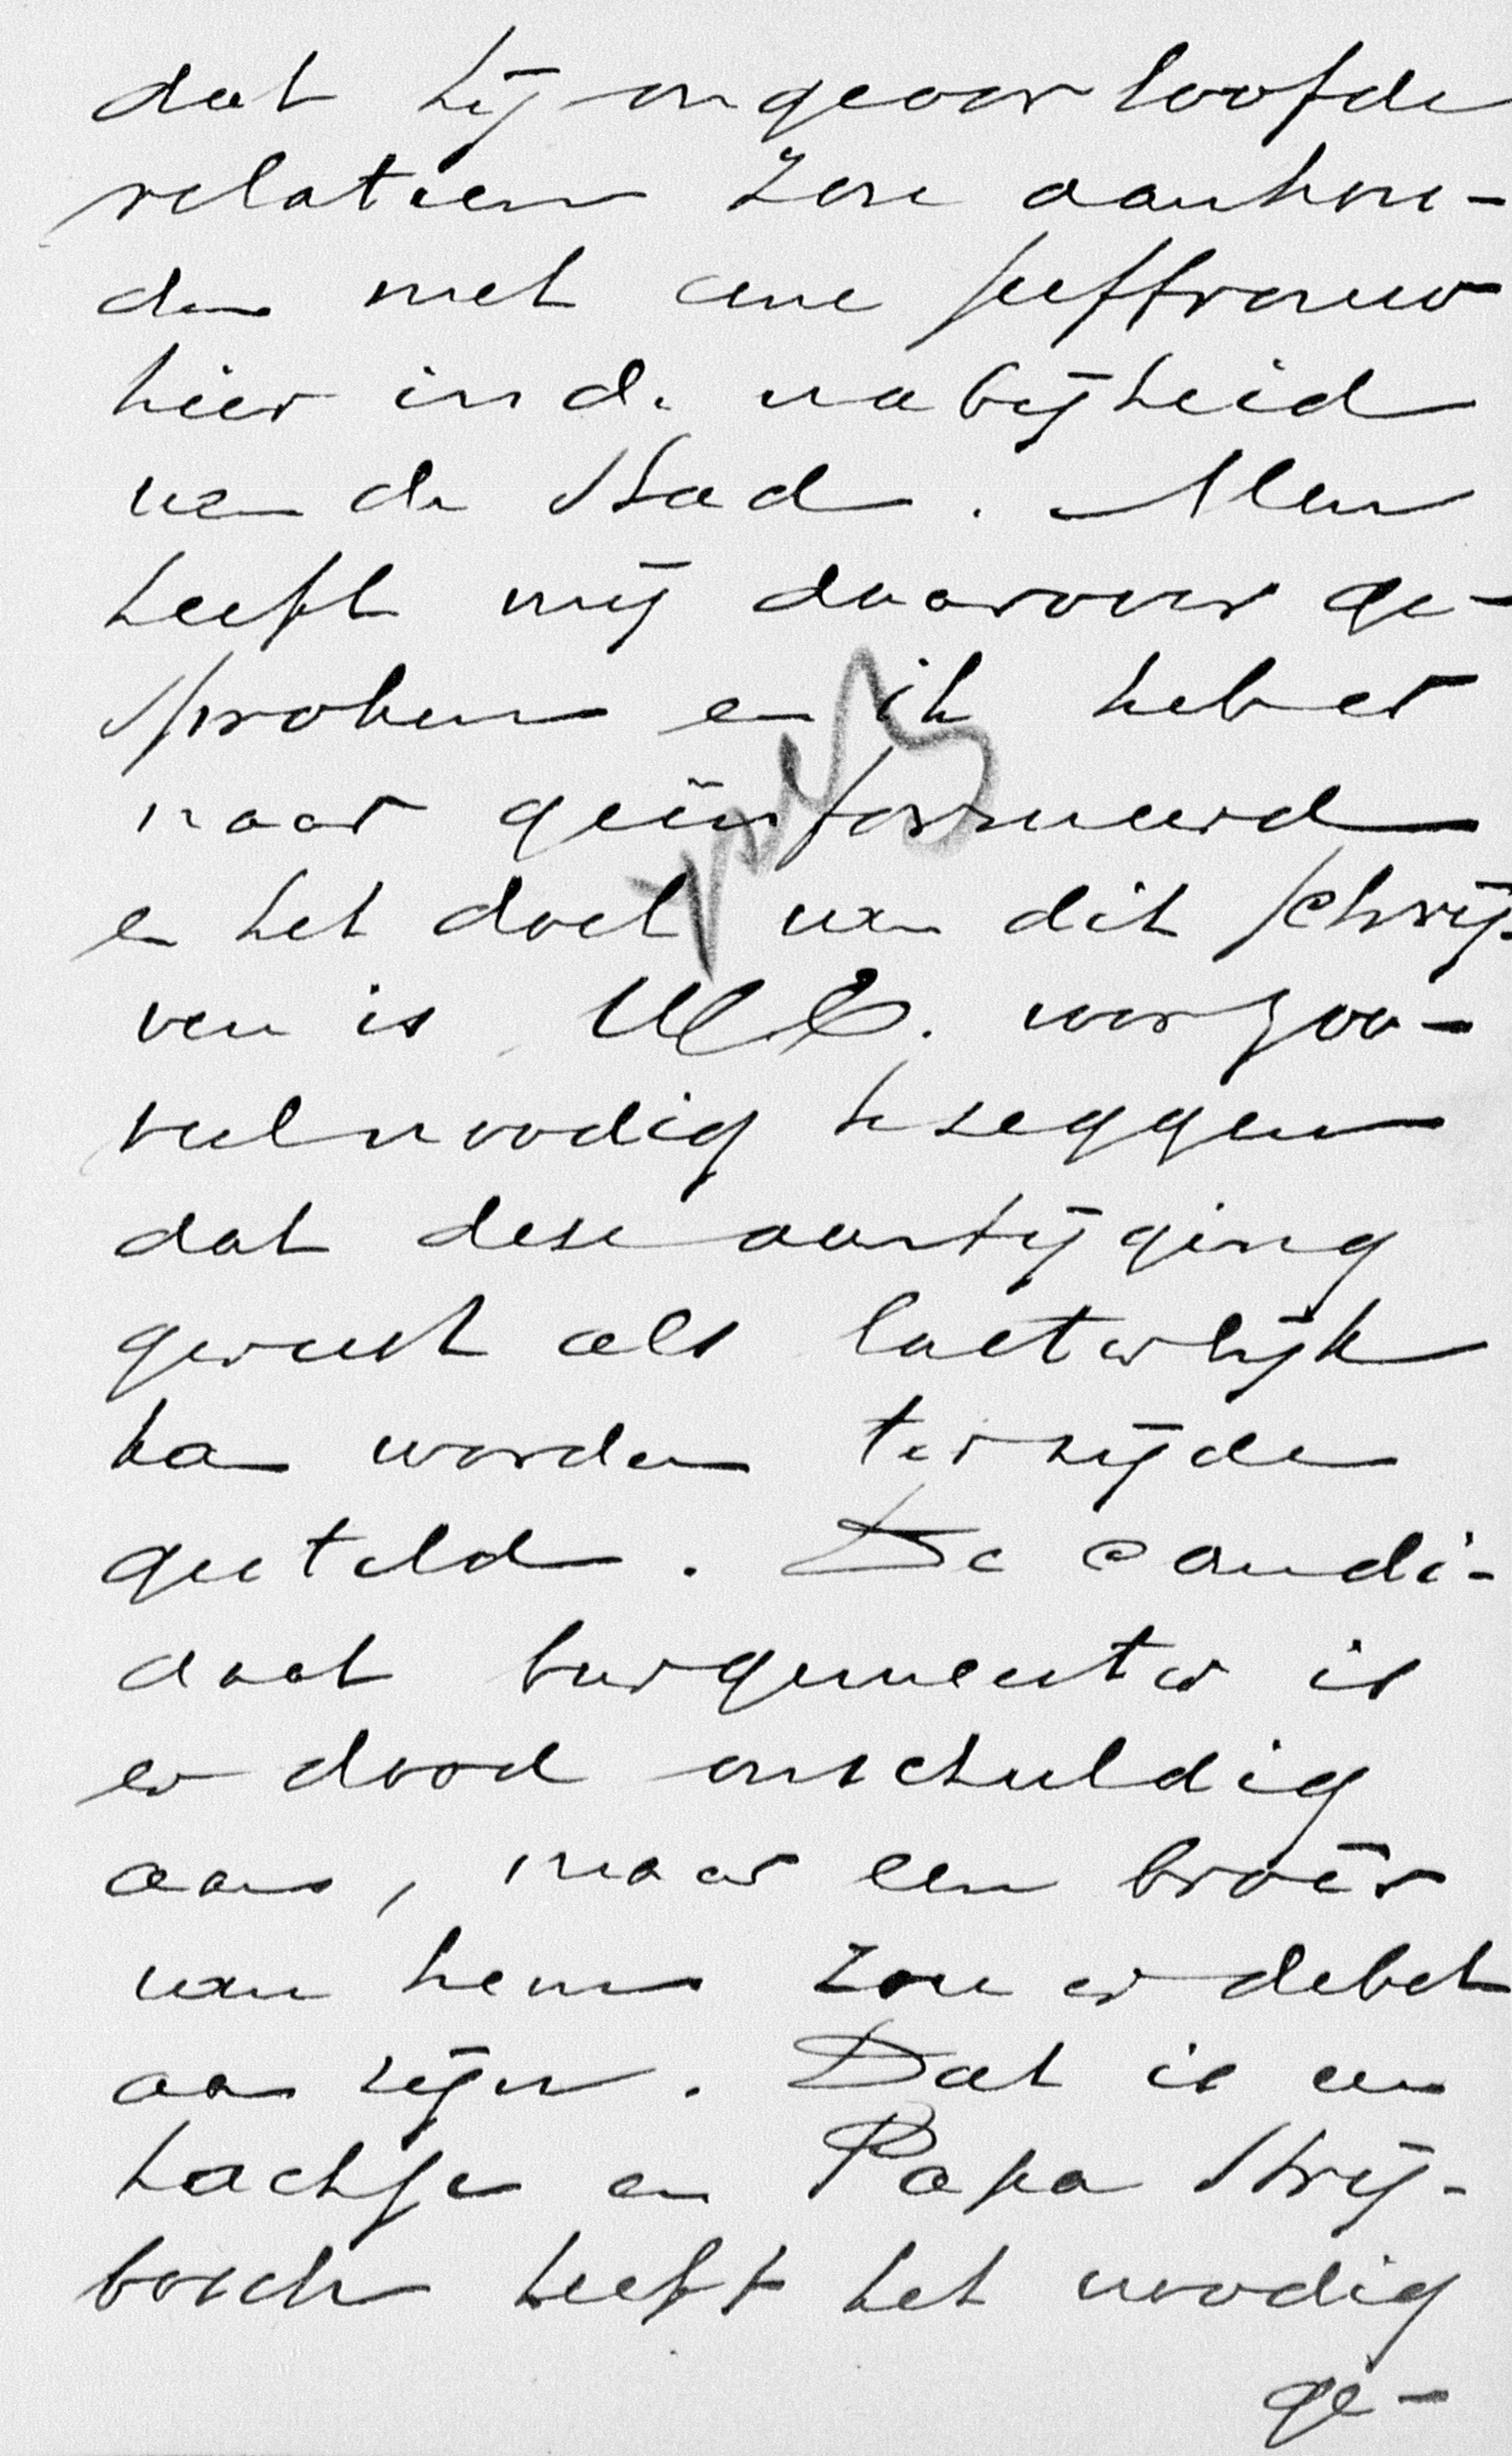 dat hij ongeoorloofde
relatien zou aanhou-
den met eene juffrouw
hier in de nabijheid
van de Stad. Men
heeft mij daarover ge-
sproken en ik heb er
naar geïnformeerd
en het doel van dit schrij-
ven is UEd. voor zoo-
veel noodig te zeggen
dat deze aantijging
gerust als lasterlijk
kan worden ter zijde
gesteld. De candi-
daat burgemeester is
er dood onschuldig
aan, maar een broêr
van hem zou er debet
aan zijn. Dat is een
hachje en Papa Strij-
bosch heeft het noodig
ge-